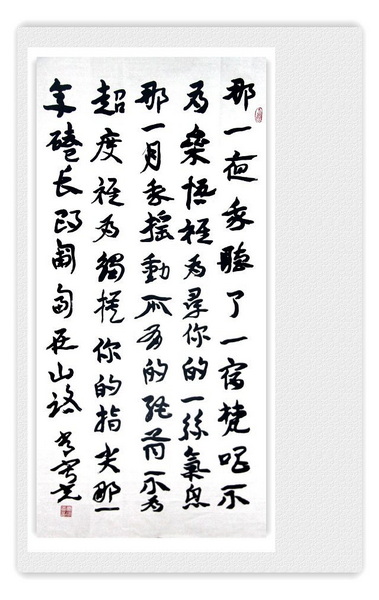 那一夜我聽了一宿梵唱不
为參悟祗为尋你的一絲氣息
那一月我摇動所有的经筒不为
超度祗为觸摸你的指尖那一
年磕长頭匍匐在山路